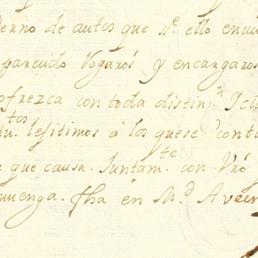 derno de autos que sre ello enui
parecido Rogaros y encargaros
ofrezca con toda distinn
tos lesitimos á los quese conti
e que causa. Juntamte con Vro
uenga. fha en Md A vein